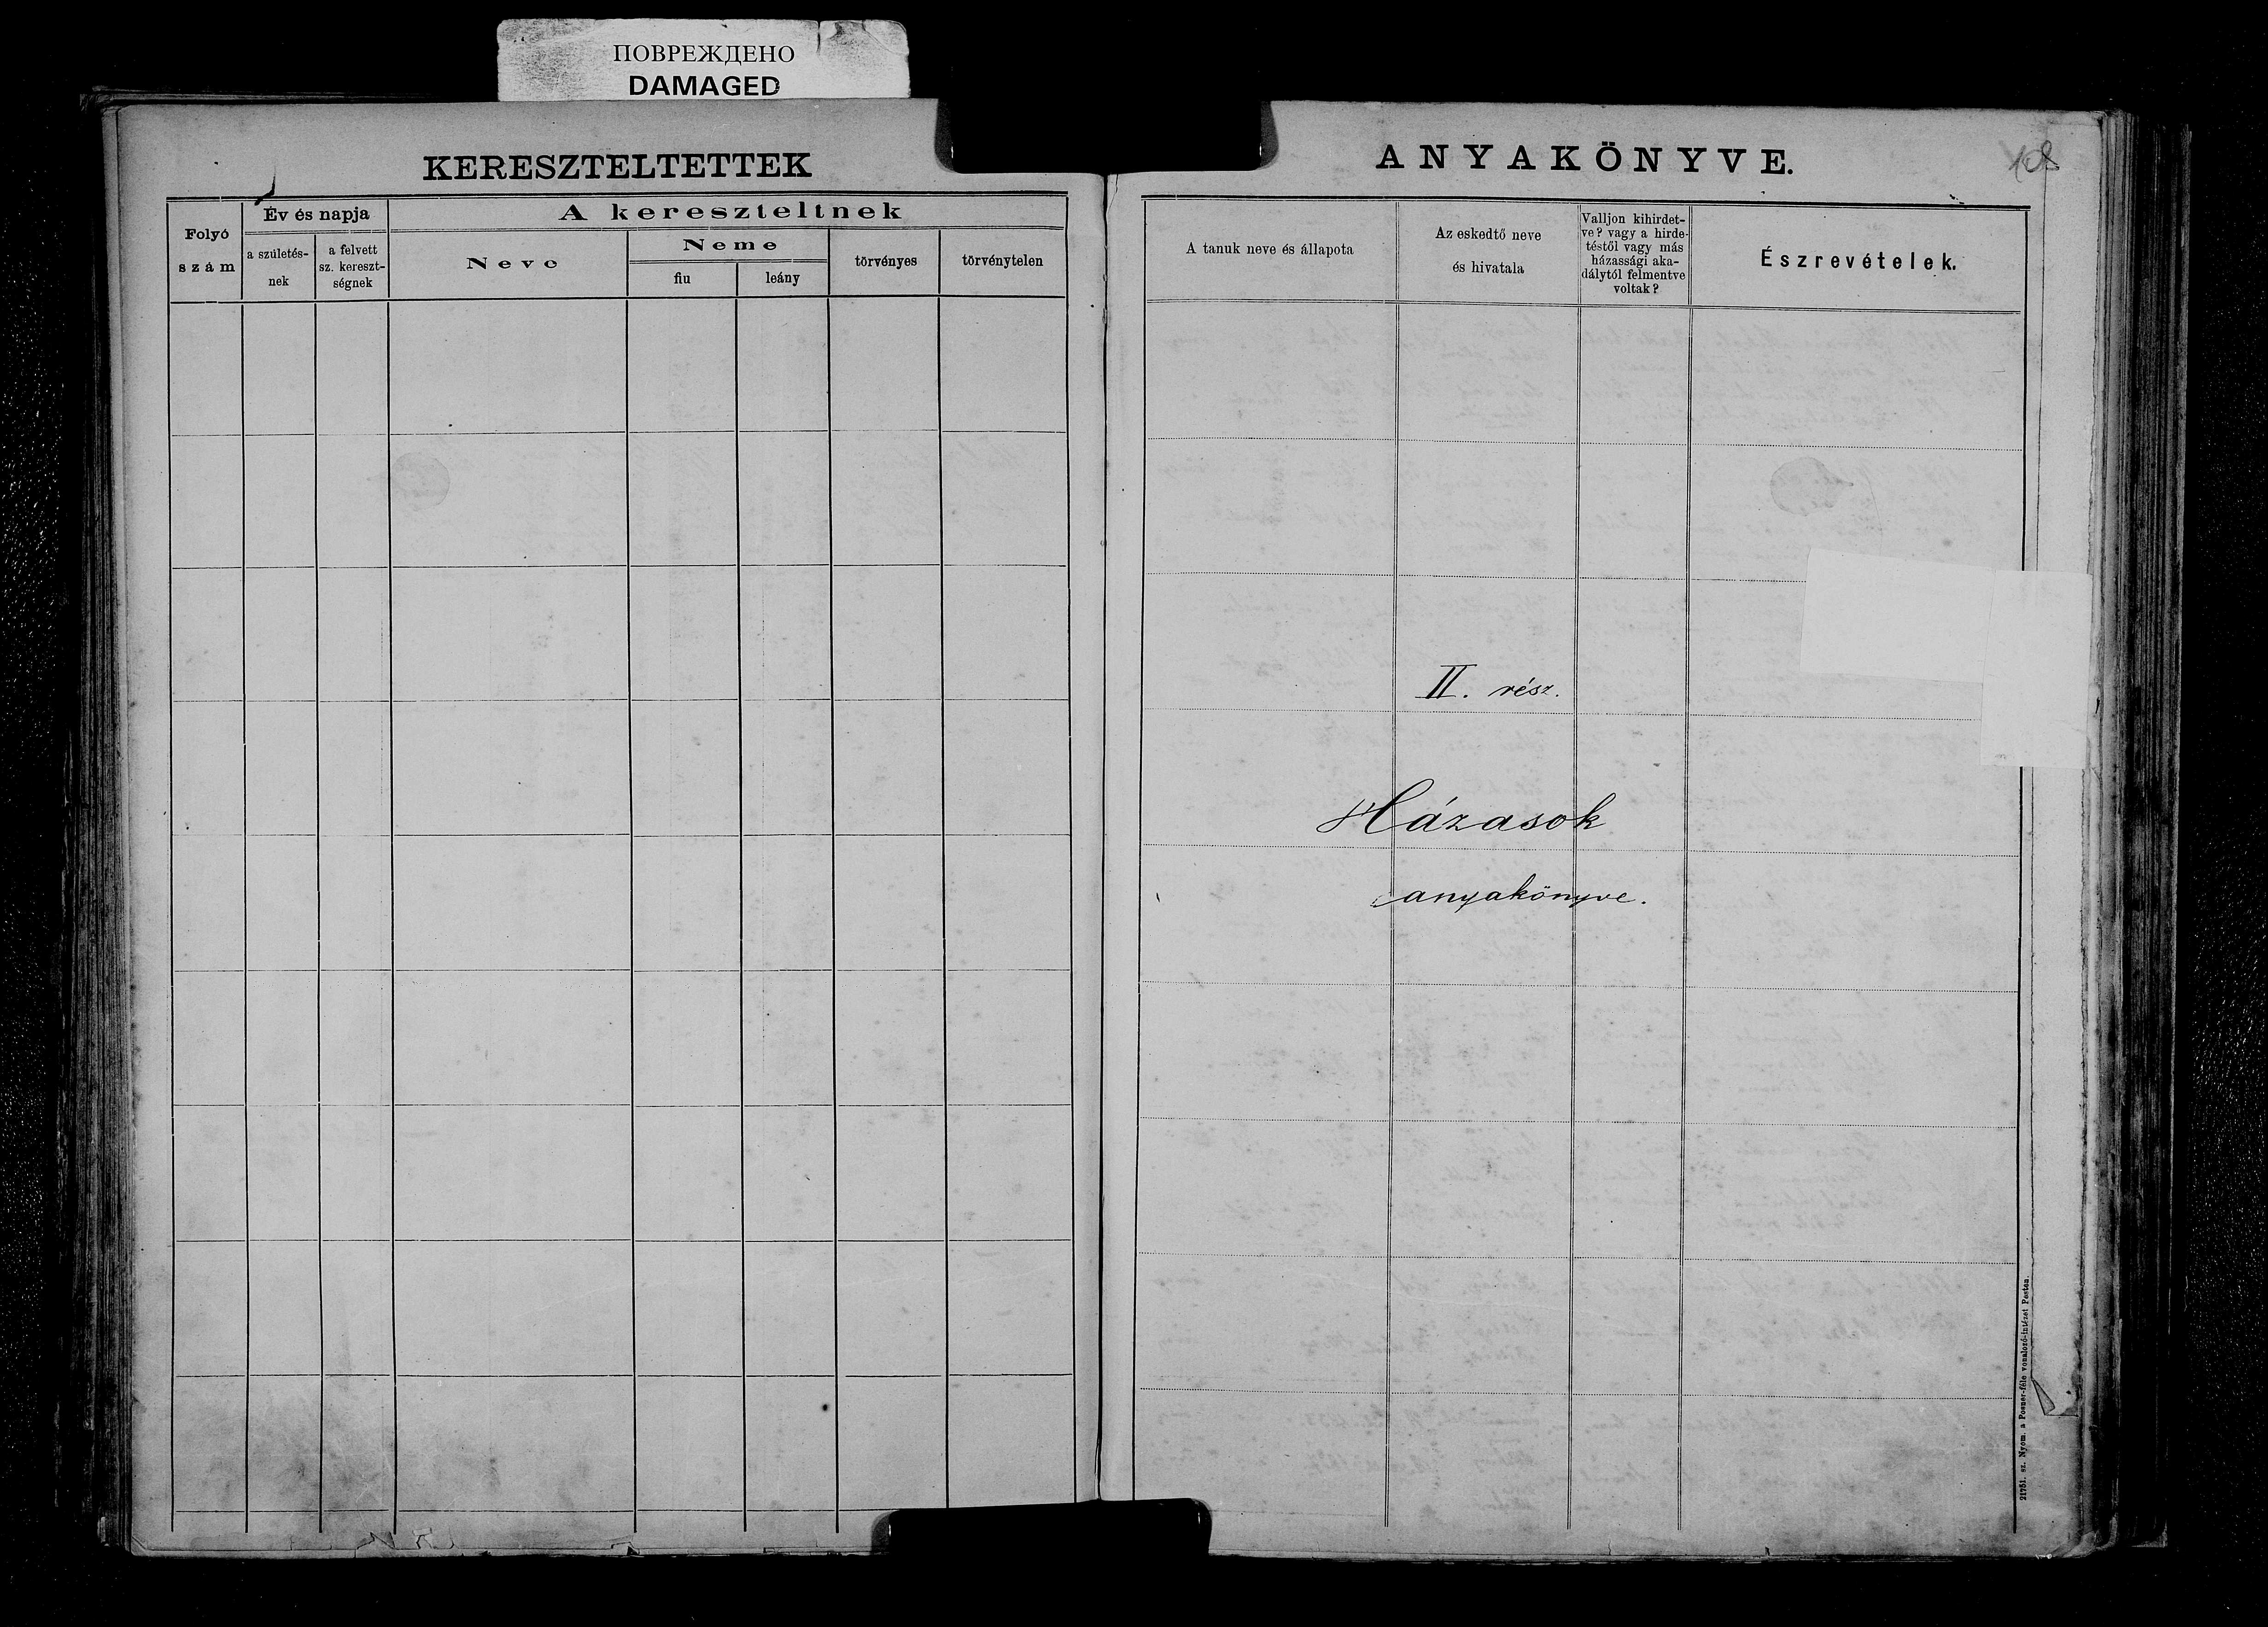 ПОВРЕЖДЕНО
DAMAGED
KERESZTELTETTEK
Folyó
szám
Év és napja
a születés-
nek
a felvett
sz. kereszt-
ségnek
A kereszteltnek
Neve
Neme
fiu
leány
törvényes
törvénytelen
ANYAKÖNYVE.
A tanuk neve és állapota
Az eskedtő neve
és hivatala
Valljon kihirdet-
ve? vagy a hirde-
téstől vagy más
házassági aka-
dálytól felmentve
voltak?
Észrevételek.
II. rész.
Házasok
anyakönyve.
21751. sz. Nyom. a Posner-féle vonalozó-intézet Pesten.